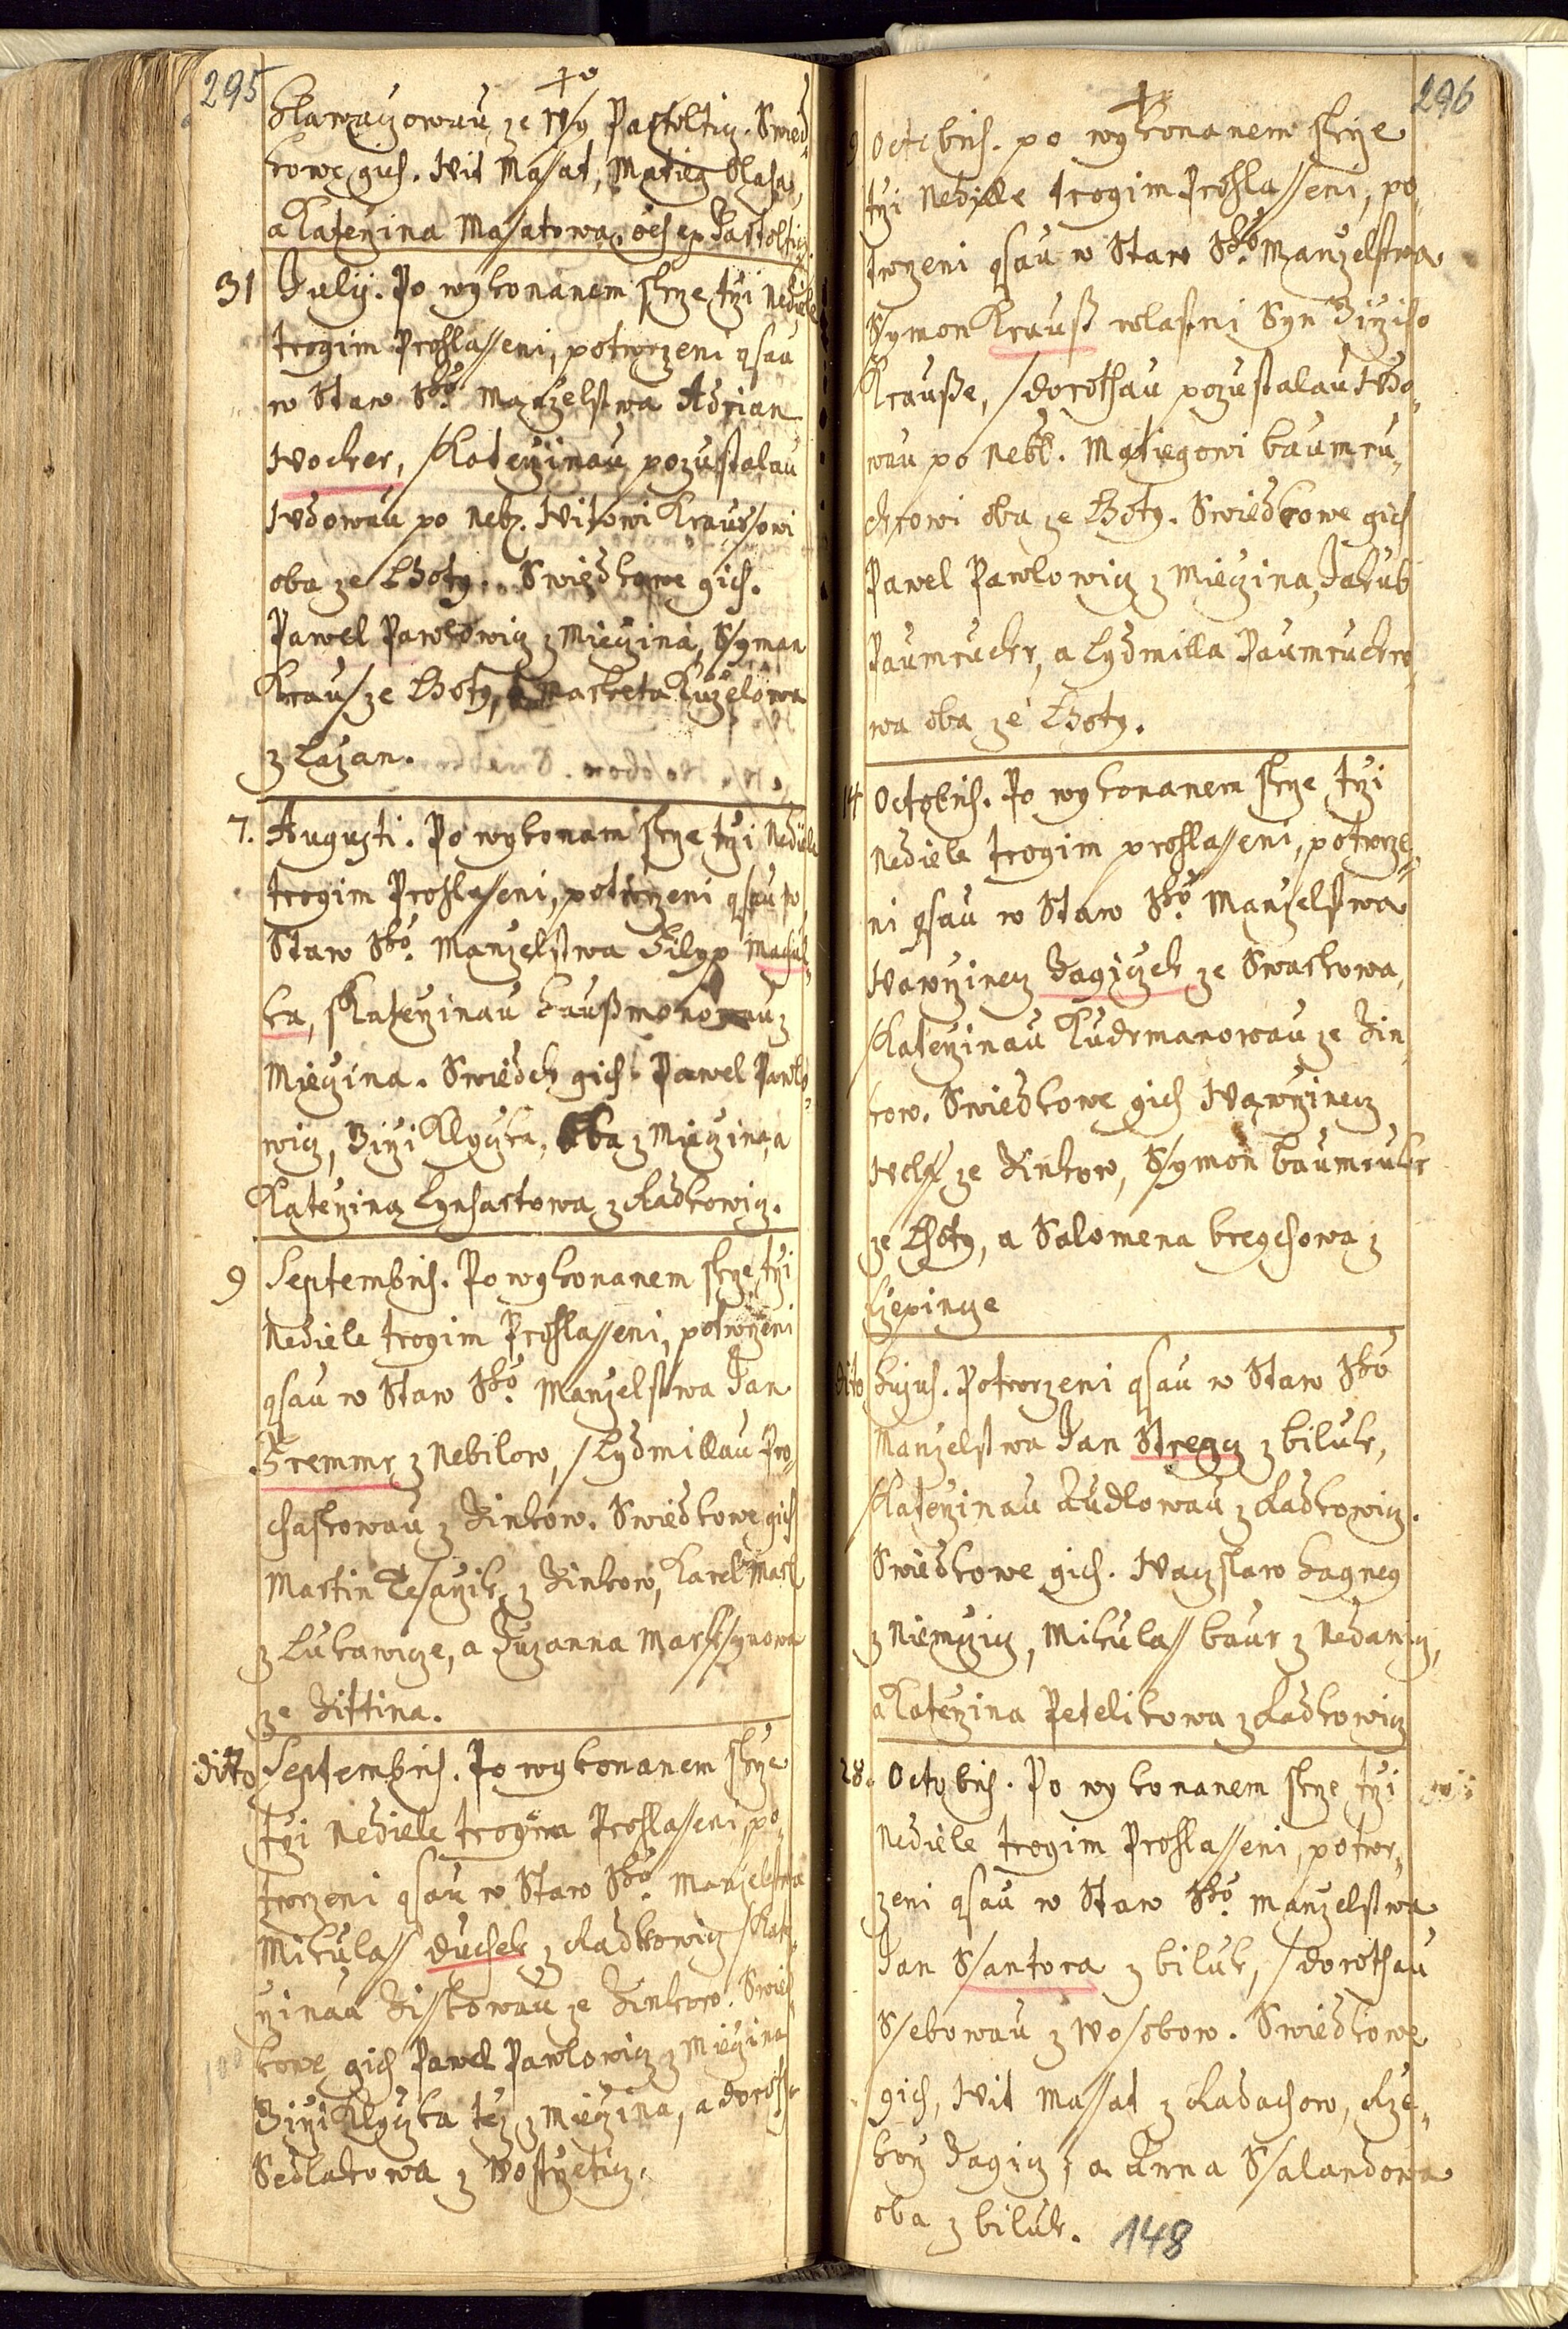 295
Hlawaczowau, ze Wsy Partolticz. Swied-
kowe gich. Wit Masat, Matieg Blaha,
a Katerzina Masatowa, oes ex Partolticz.
31 Julij. Po wykonanem skrze trzi Nediele
trogim Prohlasseni, potwrzeni gsau
w Staw Sho. Manzelstwa Adrian
Wocker, s Katerzinau pozustalau
Wdowau po Neb. Witowi Kraussowi
oba ze Lhoty. Swiedkowe gich.
Pawel Pawlowicz z Mieczina, Ssyman
Kraus ze Lhoty, a Marketa Kuzelowa
z Lazan.
7. Augusti. Po wykonam skrze trzi Nediele
trogim Prohlasseni, potwrzeni gsau w
Staw Sho. Manzelstwa Filyp Machul-
ka, s Katerzinau Haußmonowau z
Mieczina. Swiedek gich. Pawel Pawlo-
wicz, Girzi Klyczka, oba z Mieczina, a
Katerzina Lynhartowa z Radkowicz.
9 Septembris. Po wykonanem skrze trzi
Nediele trogim Prohlasseni, potwrzeni
gsau w Staw Sho. Manzelstwa Jan
Fremmr z Nebilow, s Lydmillau Pro-
chaskowau z Zinkow. Swiedkowe gich
Martin Tesarzik z Zinkow, Karel Mark
z Lukawicze, a Zuzanna Markssynowa
ze Zittina.
ditto Septembris. Po wykonanem skrze
trzi Nediele trogim Prohlasseni, po-
twrzeni gsau w Staw Sho. Manzelstwa
Mikulass Duchek z Radkowicz s Kate-
rzinau Zisskowau ze Zinkow. Swied-
kowe gich Pawel Pawlowicz z Mieczina
Girzi Klyczka tez z Mieczina, a Doroth
Sedlakowa z Wostrzeticz.
296
9 Octobris. po wykonanem skrze
trzi Nediele trogim Prohlasseni, po-
twrzeni gsau w Staw Sho. Manzelstwa
Ssymon Krauß wlastni Syn Girziho
Krauße, s Dorothau pozustalau Wdo-
wau po Nebl. Matiegowi Baumru-
ckrowi oba ze Lhoty. Swiedkowe gich
Pawel Pawlowicz z Mieczina, Jakub
Paumruckr, a Lydmilla Paumruckro-
wa oba ze Lhoty.
14 Octobris. Po wykonanem skrze trzi
Nediele trogim prohlasseni, potwrze-
ni gsau w Staw Sho. Manzelstwa
Wawrzinecz Jagiczek ze Swarkowa,
s Katerzinau Kudrmanowau ze Zin-
kow. Swiedkowe gich Wawrzinecz
Welss ze Zinkow, Ssymon Baumrukr
ze Lhoty, a Salomena Bregchowa z
Czepincze
dito hujus. Potwrzeni gsau w Staw Sho
Manzelstwa Jan Stregcz z Biluk,
s Katerzinau Rudlowau z Radkowicz.
Swiedkowe gich. Waczslaw Hagneg
z Niemczicz, Mikulass Baur z Nedanicz,
a Katerzina Petelikowa z Radkowicz
28. Octobris. Po wykonanem skrze trzi
Nediele trogim Prohlasseni, potwr-
zeni gsau w Staw Sho. Manzelstwa
Jan Ssantora z Biluk, s Dorothau
Ssebowau z Wosobow. Swiedkowe
gich, Wit Massat z Radachow, Rze-
horz Jagicz, a Anna Ssalandowa
oba z Biluk.
148